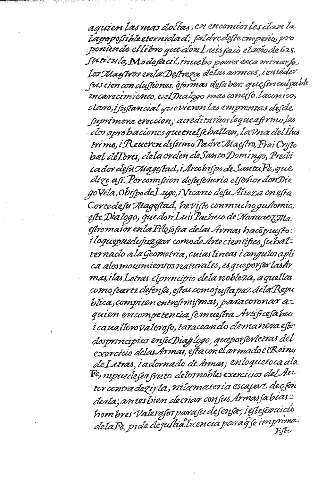 aquien las mas doctas, en encomios
la posposible eternidad, saldre deste empeño, pro
poniendo el libro que don Luis sacò el año de 625.
su titulo, Modo facil, i nuebo para examinarse
los Maestros en la Destreza de las armas, i entender
sus cien conclusiones, ò formas de saber. que sin culpable
encarecimiento, es el Dialogo mas conciso, laconico,
claro, i sustancial que vieron las emprentas desde
su primera ereccion; acreditaràn lo que afirmo, las
dos aprobaciones que en el se hallan, la una del Illus
trisimo, i Reverendisimo Padre Maestro, Frai Cristo
bal de Torres, de la orden de Santo Domingo, Predi
cador de su Magestad, i Arçobispo de Santa Fe, que
dize asi. Por comision de el señor don Die
go Vela, Obispo de Lugo, i Vicario desta Villa en esta
Corte de su Magestad, he visto con mucho gusto
este Dialogo, que don Luis Pacheco de Narvaez Ma
estro maior en la Filosofia de las Armas ha compuesto:
i lo que puedo juzgar como de Arte cientifico, subal
ternado a la Geometria, cuias lineas i angulos apli
ca a los movimientos racionales, es, que por ser las Ar
mas, i las Letras el principio de la nobleza, aquellas
como fuerte defensa, estas como justa paz de la Repu
blica, compiten entre si mismas, para coronar a
quien en competencia se muestra Artifice sabio
i cavallero Valeroso, taraceando de manera estos
dos principios en su Dialogo, que por ser letras del
exercicio de las Armas, està con el armado el Reino
de Letras, i adornado de Armas; en lo que toca a la
Fè, impide ser fruto de tan nobles exercicios del Au
tor contra della, ni la materia es capaz de ofen
derla; antes bien de criar con sus Armas sabias
hombres Valerosos para su defensa; i este servicio
de la Fè, pide de justicia licencia para que se imprima.
Este